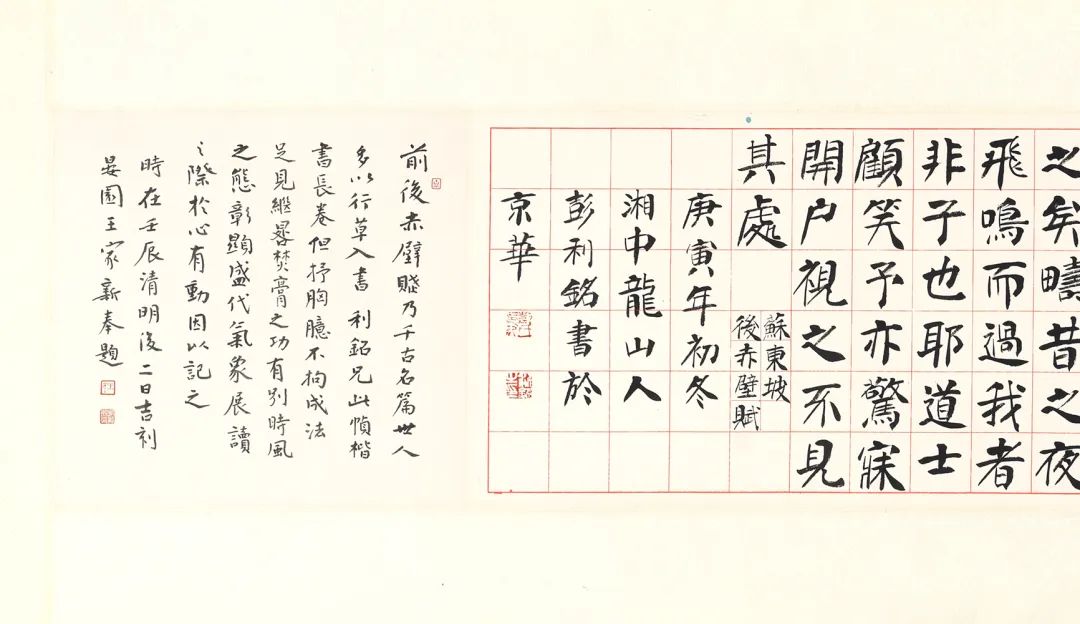 之矣疇昔之夜
飛鳴而過我者
非子也耶道士
顧笑予亦驚寤
開户視之不見
其處
蘇東坡
後赤壁賦
庚寅年初冬
湘中龍山人
彭利銘書於
京華
前後赤壁賤乃千古名篇世人
多以行草入書利銘兄此幀楷
書長卷但抒胸臆不拘成法
足見繼晷焚膏之功有别時風
之態彰顯盛代氣象展讀
之際於心有動因以記之
時在壬辰清明後二日吉利
晏園王家新奉題